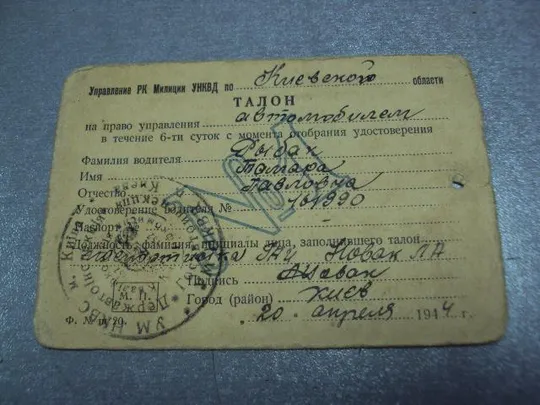 Управление РК Милиции УНКВД по Киевской области
ТАЛОН
на право управления автомобилем
в течение 6-ти суток с момента отобрания удостоверения
Фамилия водителя Рыбак
Имя Тамара
Отчество Павловна
Удостоверение водителя № 161990
Паспорт
Должность, фамилия, инициалы лица, заполнившего талон
ГАИ Новак ЛА
Подпись
Город (район) Киев
20 апреля 1944 г.
№1
УМ НКВС м. Києва